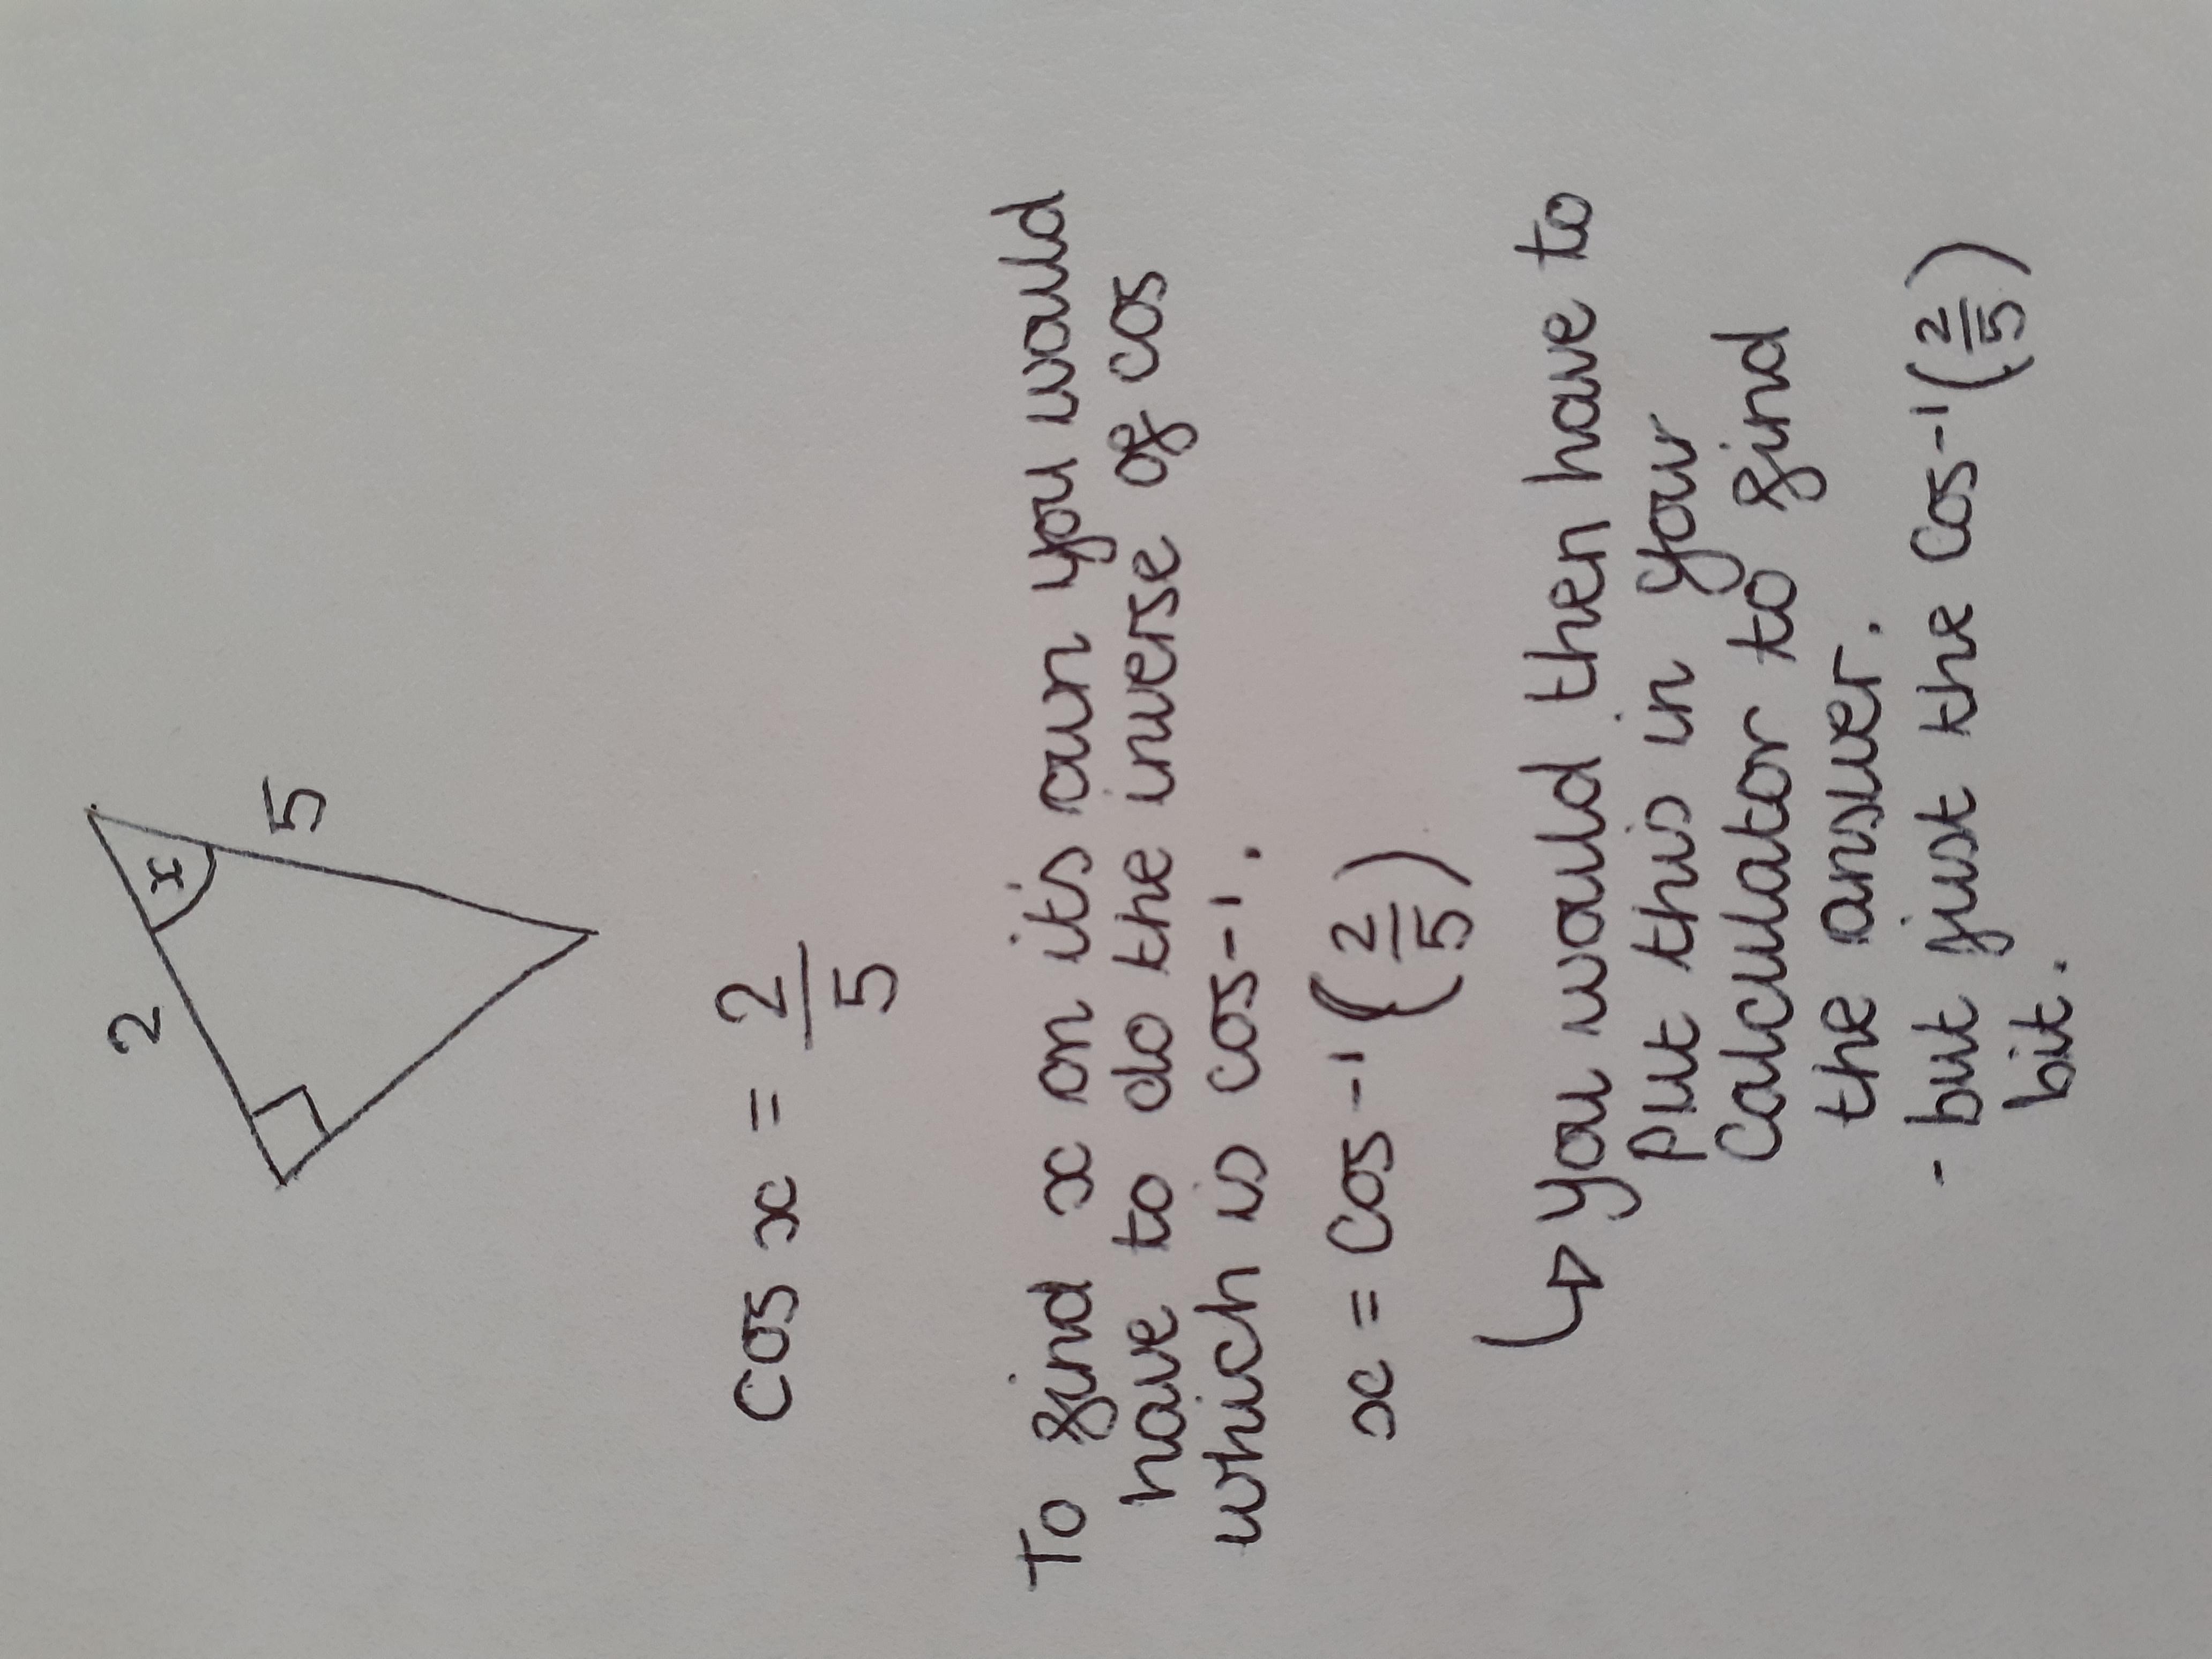 2
x
5
cos x = 2/5
To find x on it's own you would
have to do the inverse of cos
which is cos-¹.
x = cos-¹(2/5)
↳ You would then have to
put this in your
calculator to find
the answer.
- but just the cos-¹(2/5)
bit.